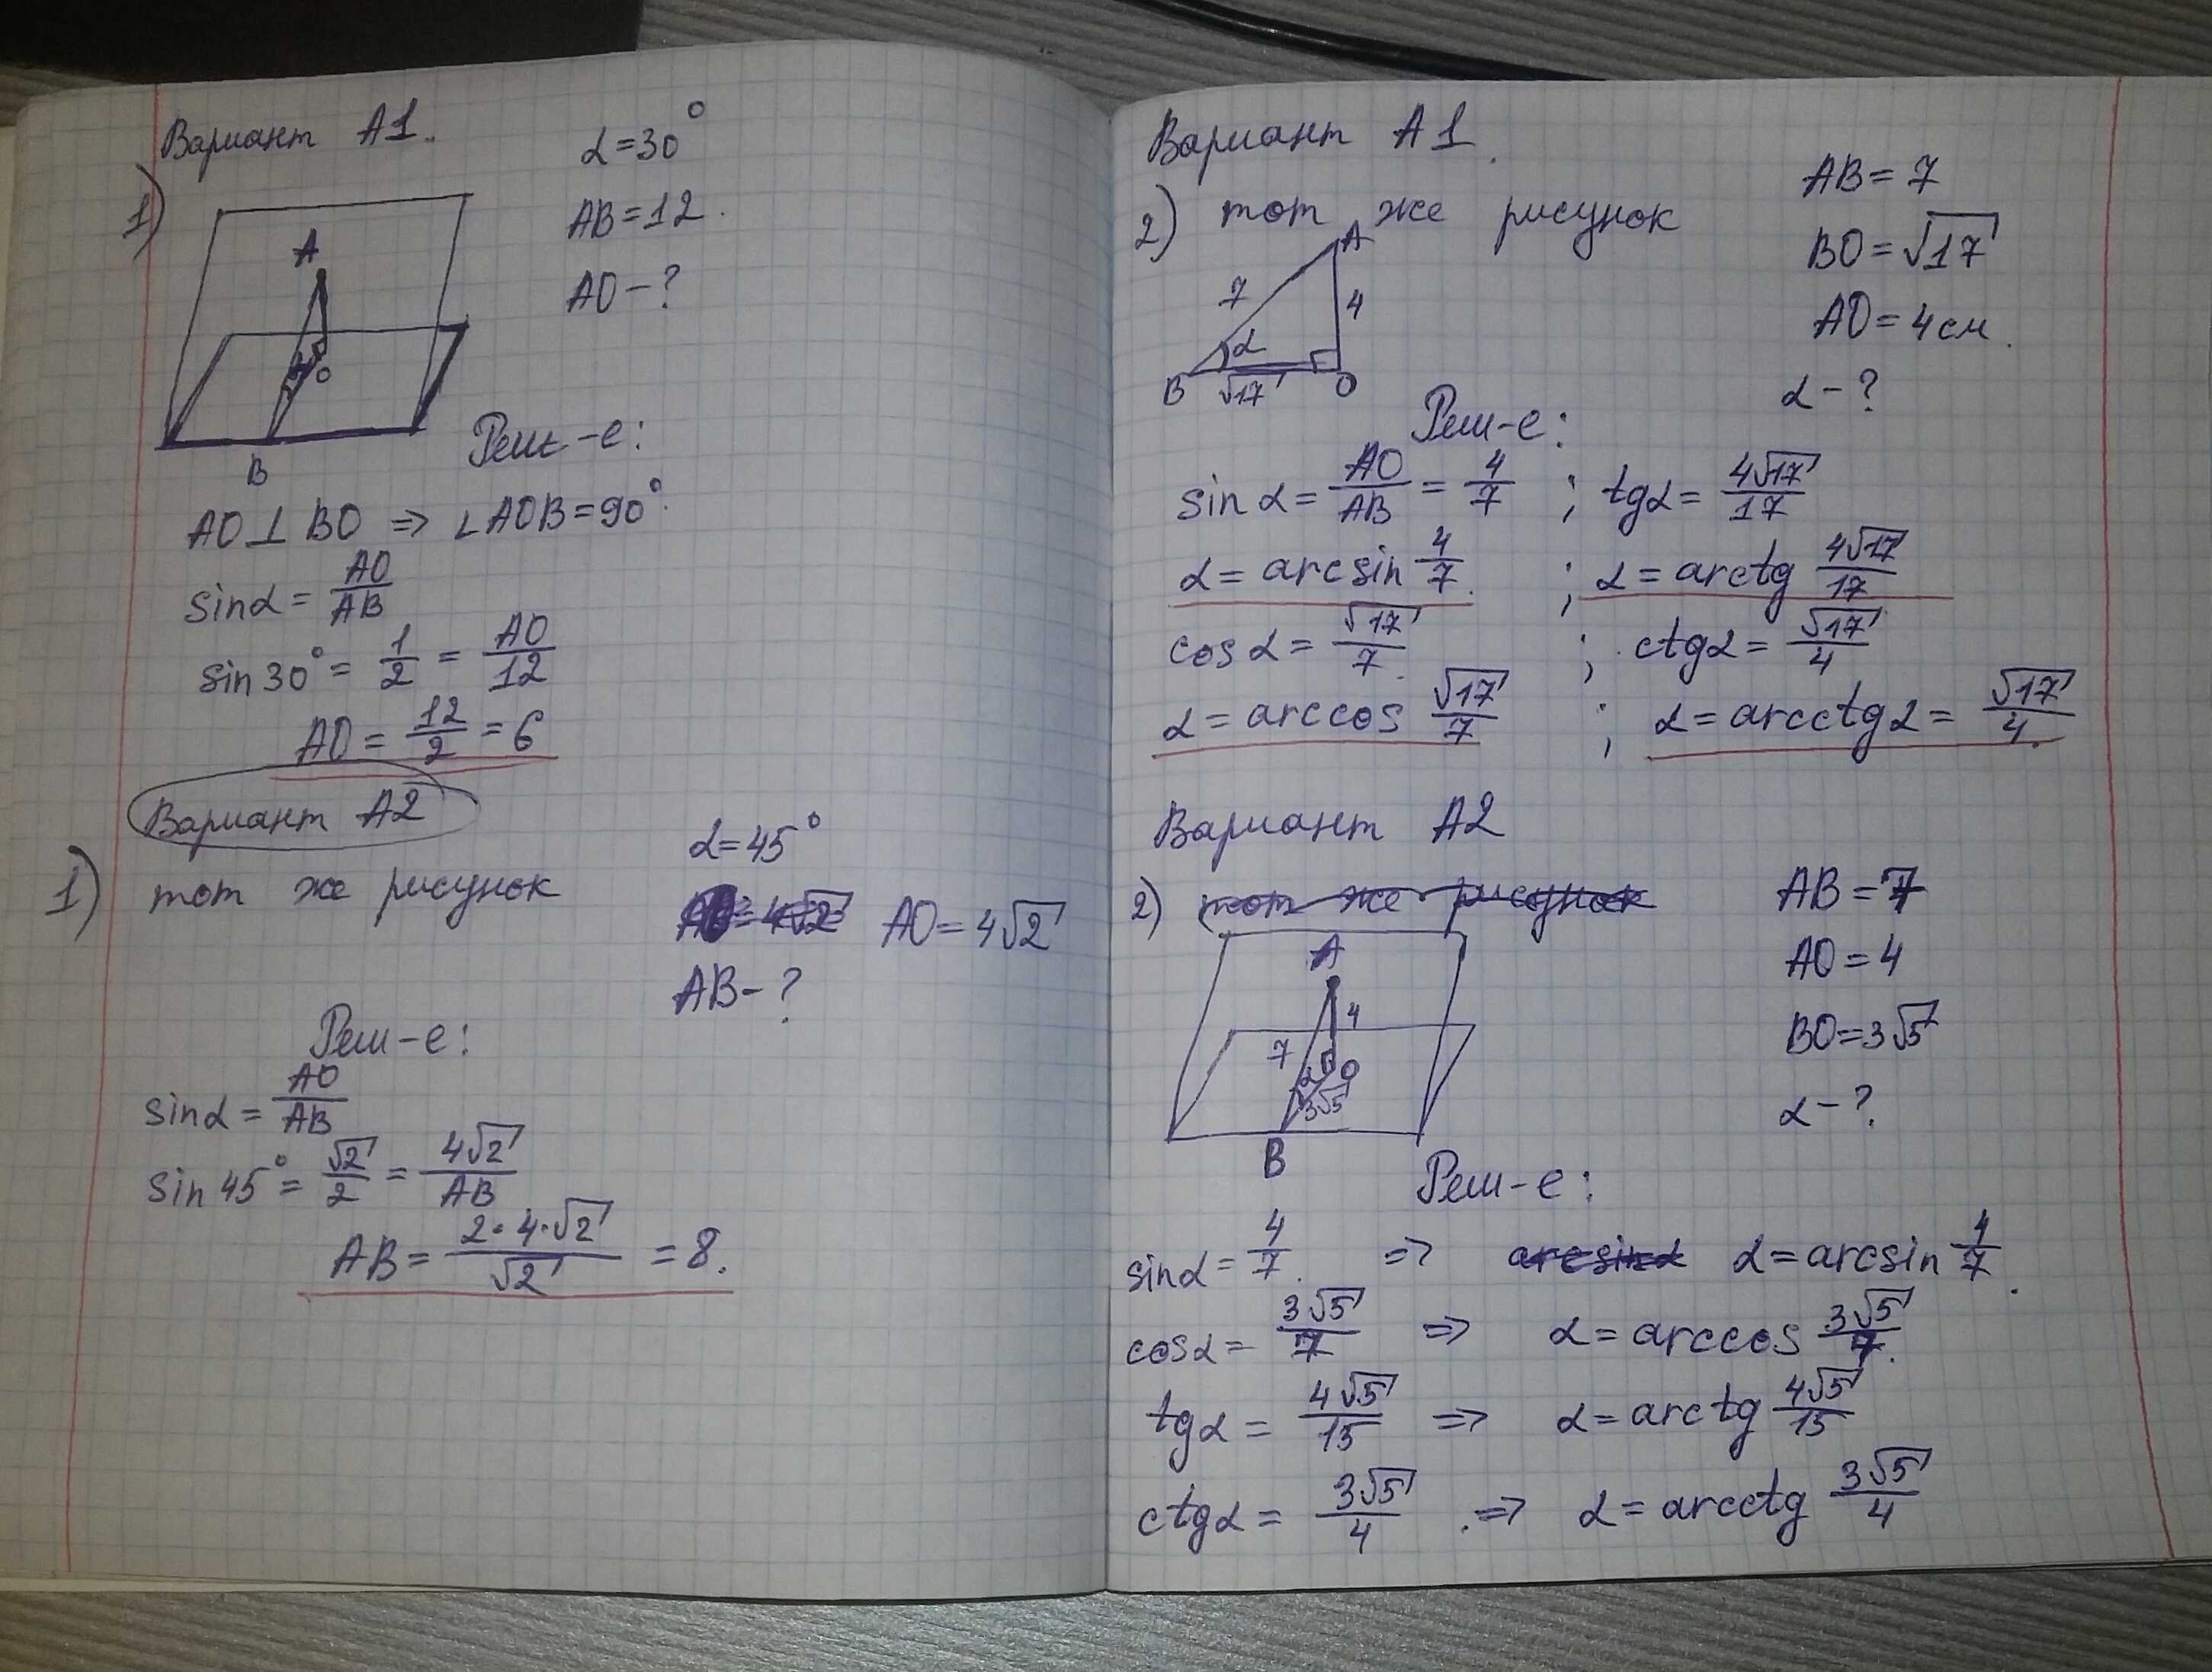 Вариант А1.
α=30°
1)
AB=12.
AO-?
A
O
B
Реш-е:
AO⊥BO ⇒ ∠AOB=90°.
sinα = AO/AB
sin30° = 1/2 = AO/12
AO = 12/2 = 6
Вариант А2
1) тот же рисунок
α=45°
AO=4√2
AB-?
Реш-е:
sinα = AO/AB
sin45° = √2/2 = 4√2/AB
AB = 2·4·√2/√2 = 8.
Вариант А1.
2) тот же рисунок
AB=7
BO=√17
AO=4см.
α-?
A
7
4
α
B
√17
O
Реш-е:
sinα = AO/AB = 4/7 ; tgα = 4√17/17
α = arcsin 4/7. ; α = arctg 4√17/17
cosα = √17/7. ; ctgα = √17/4
α = arccos √17/7 ; α = arcctgα = √17/4.
Вариант А2
2) тот же рисунок
AB=7
AO=4
BO=3√5
α-?
A
4
7
α
O
3√5
B
Реш-е:
sinα = 4/7. ⇒ arcsinα α = arcsin 4/7.
cosα = 3√5/7 ⇒ α = arccos 3√5/7.
tgα = 4√5/15 ⇒ α = arctg 4√5/15
ctgα = 3√5/4 .⇒ α = arcctg 3√5/4